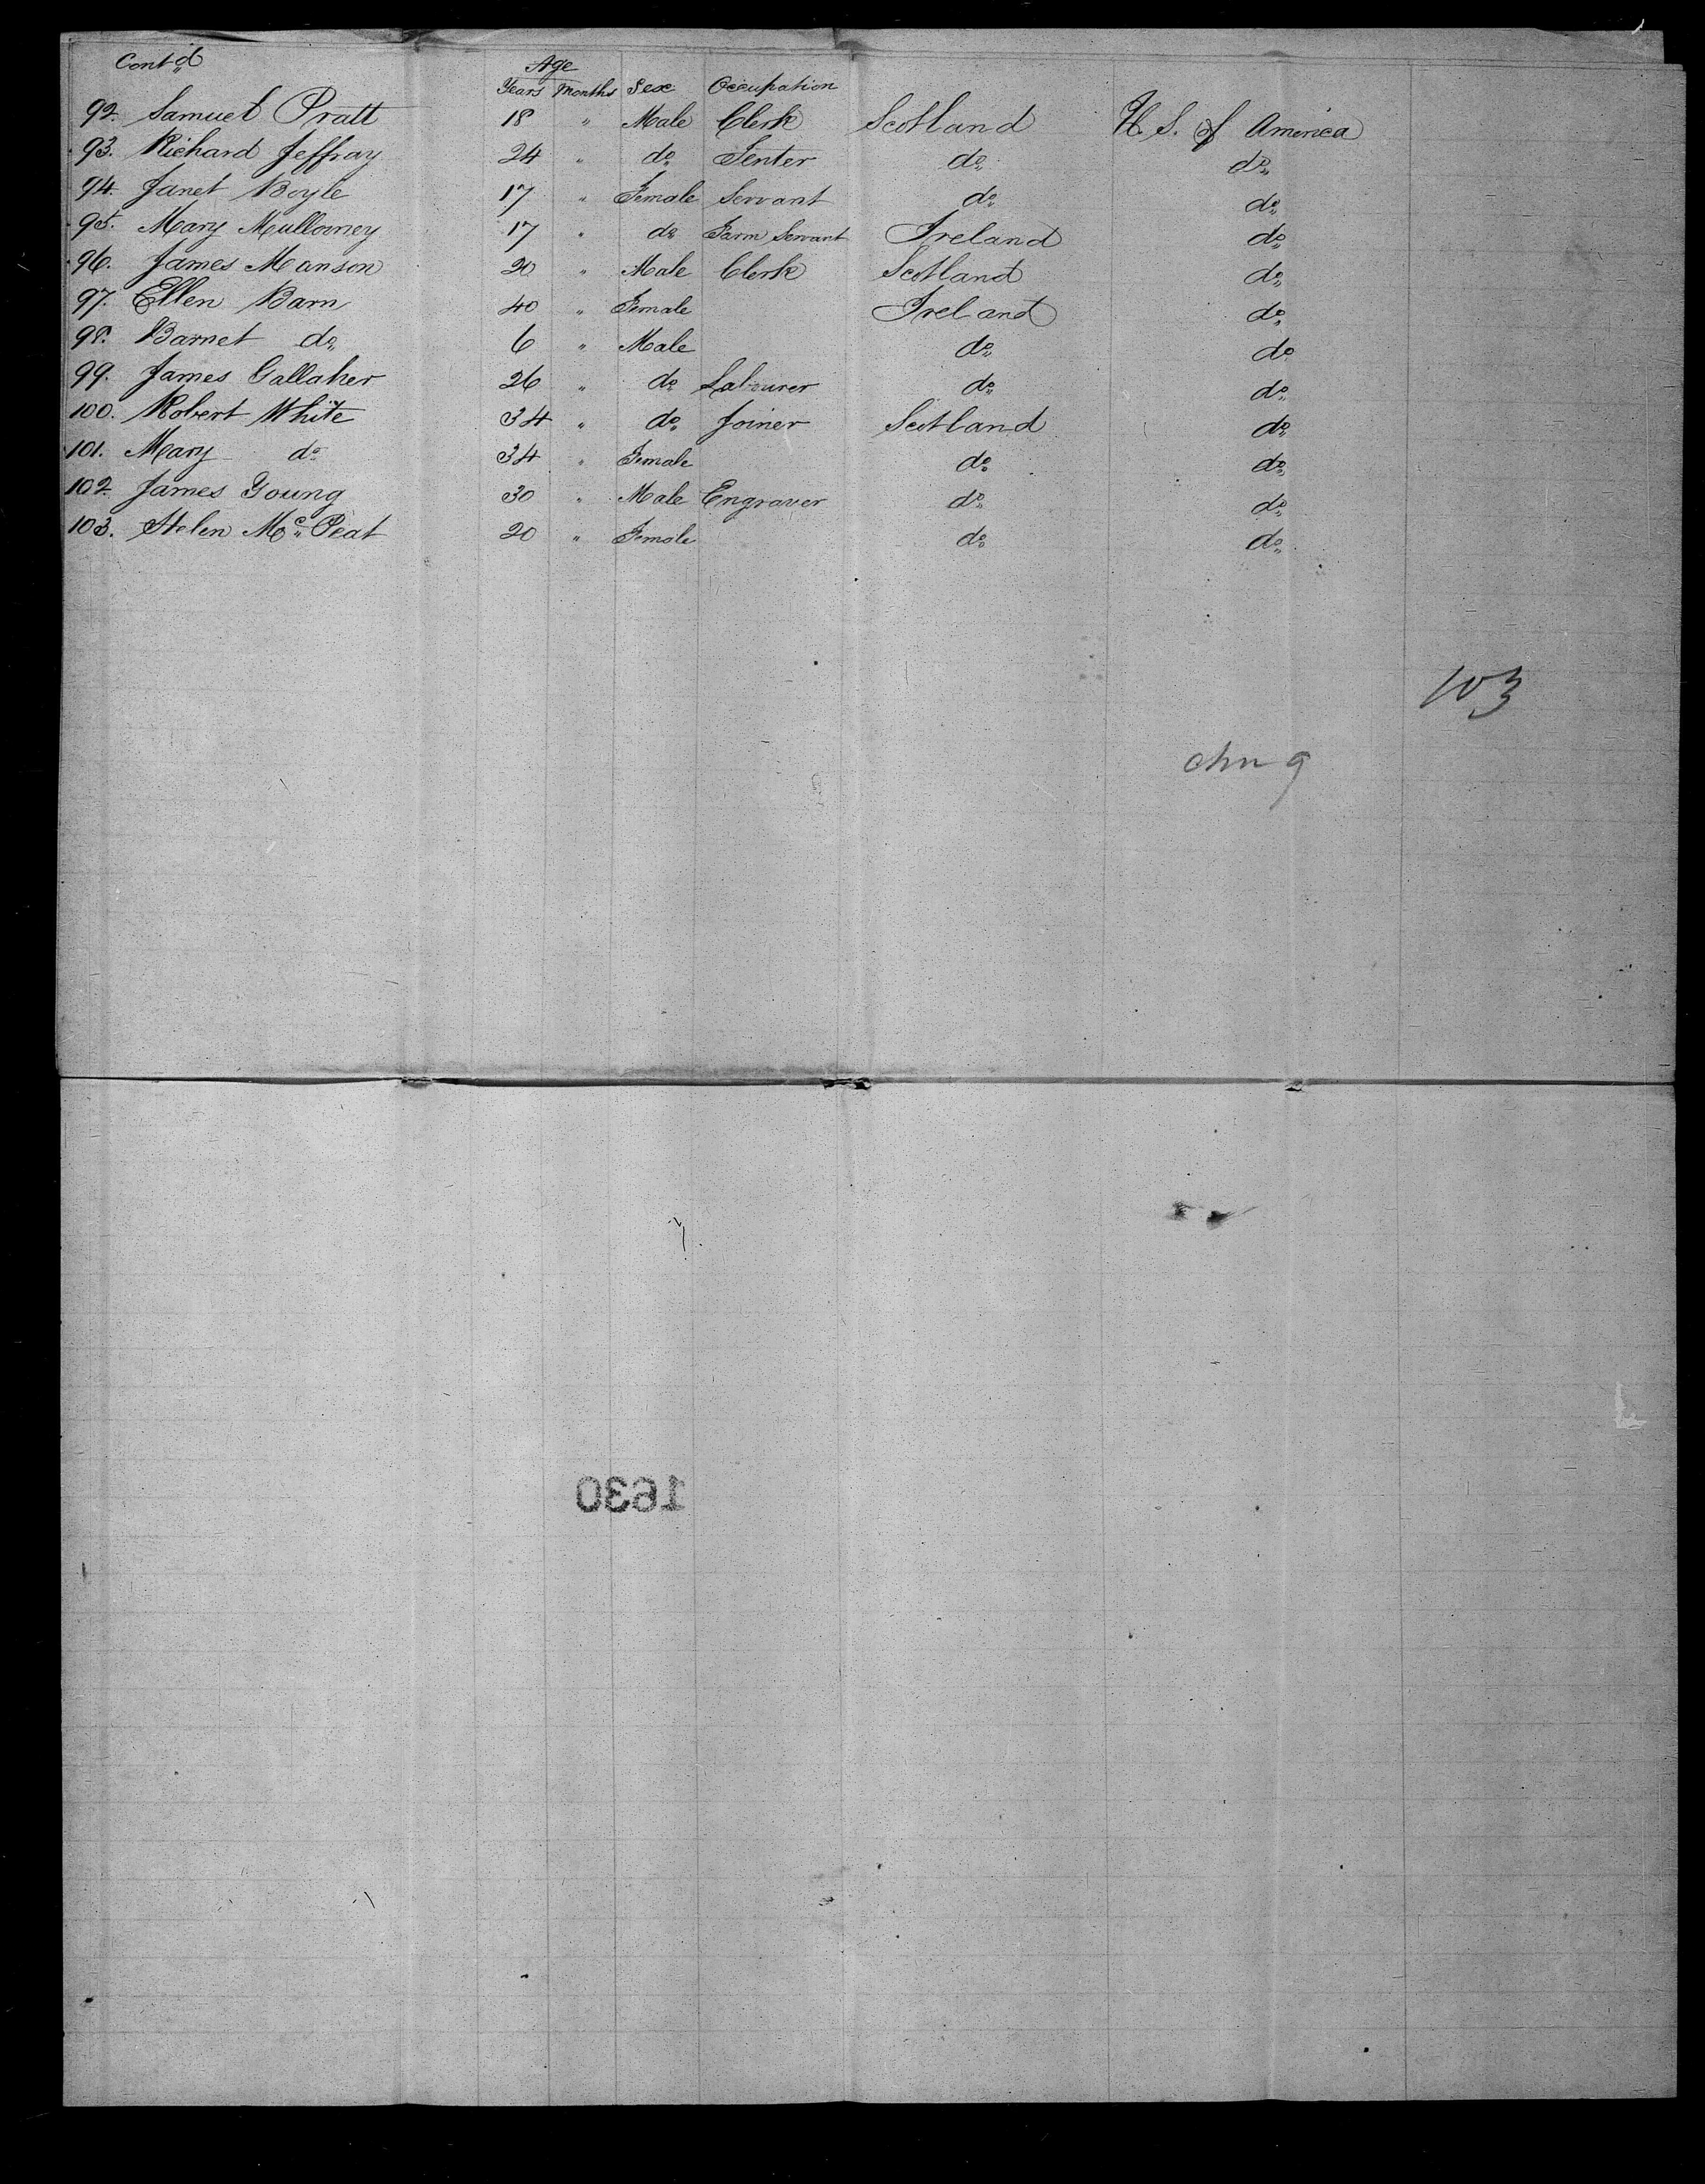 Cont'd
Age
Years Months Sex Occupation
92. Samuel Pratt 18 " Male Clerk Scotland U. S. of America
93. Richard Jeffray 24 " do Tenter do do
94. Janet Boyle 17 " Female Servant do do
95. Mary Mullowney 17 " do Farm Servant Ireland do
96. James Manson 20 " Male Clerk Scotland do
97. Ellen Barn 40 " Female Ireland do
98. Barnet do 6 " Male do do
99. James Gallaher 26 " do Labourer do do
100. Robert White 34 " do Joiner Scotland do
101. Mary do 34 " Female do do
102. James Young 30 " Male Engraver do do
103. Helen Mc Peat 20 " Female do do
103
1630